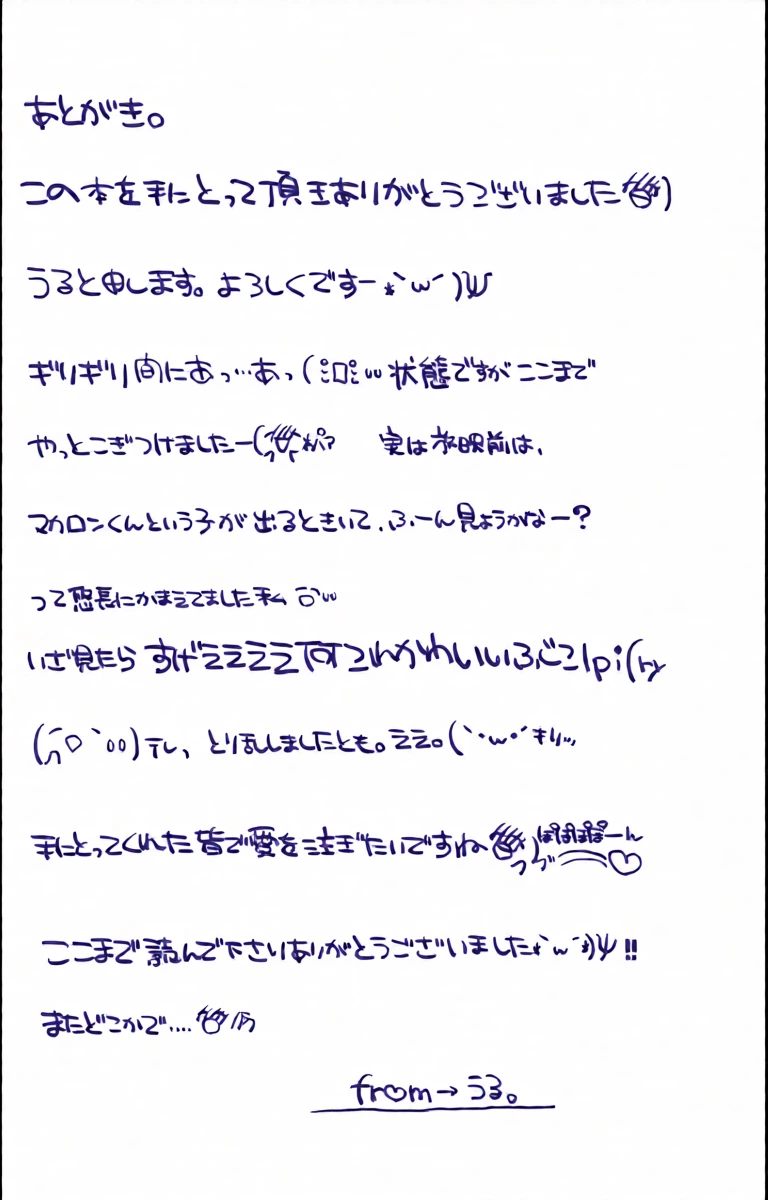 あとがき。
この本を手にとって頂きありがとうございました
うると申します。よろしくですー*`ω´)ψ
ギリギリ間にあっ…あっ( 状態ですがここまで
やっとこぎつけましたー( 実は放映前は、
マカロンくんという子が出るときいて、ふーん見ようかなー?
って悠長にかまえてました私
いざ見たら すげえええええ何これかわいいいふじこlpi(ry
テレ、とり乱しましたとも。ええ。(`・ω・´キリッ
手にとってくれた皆で愛を注ぎたいですね ぽぽぽぽーん
ここまで読んで下さりありがとうございました*`ω´*)ψ!!
またどこかで....
from→うる。